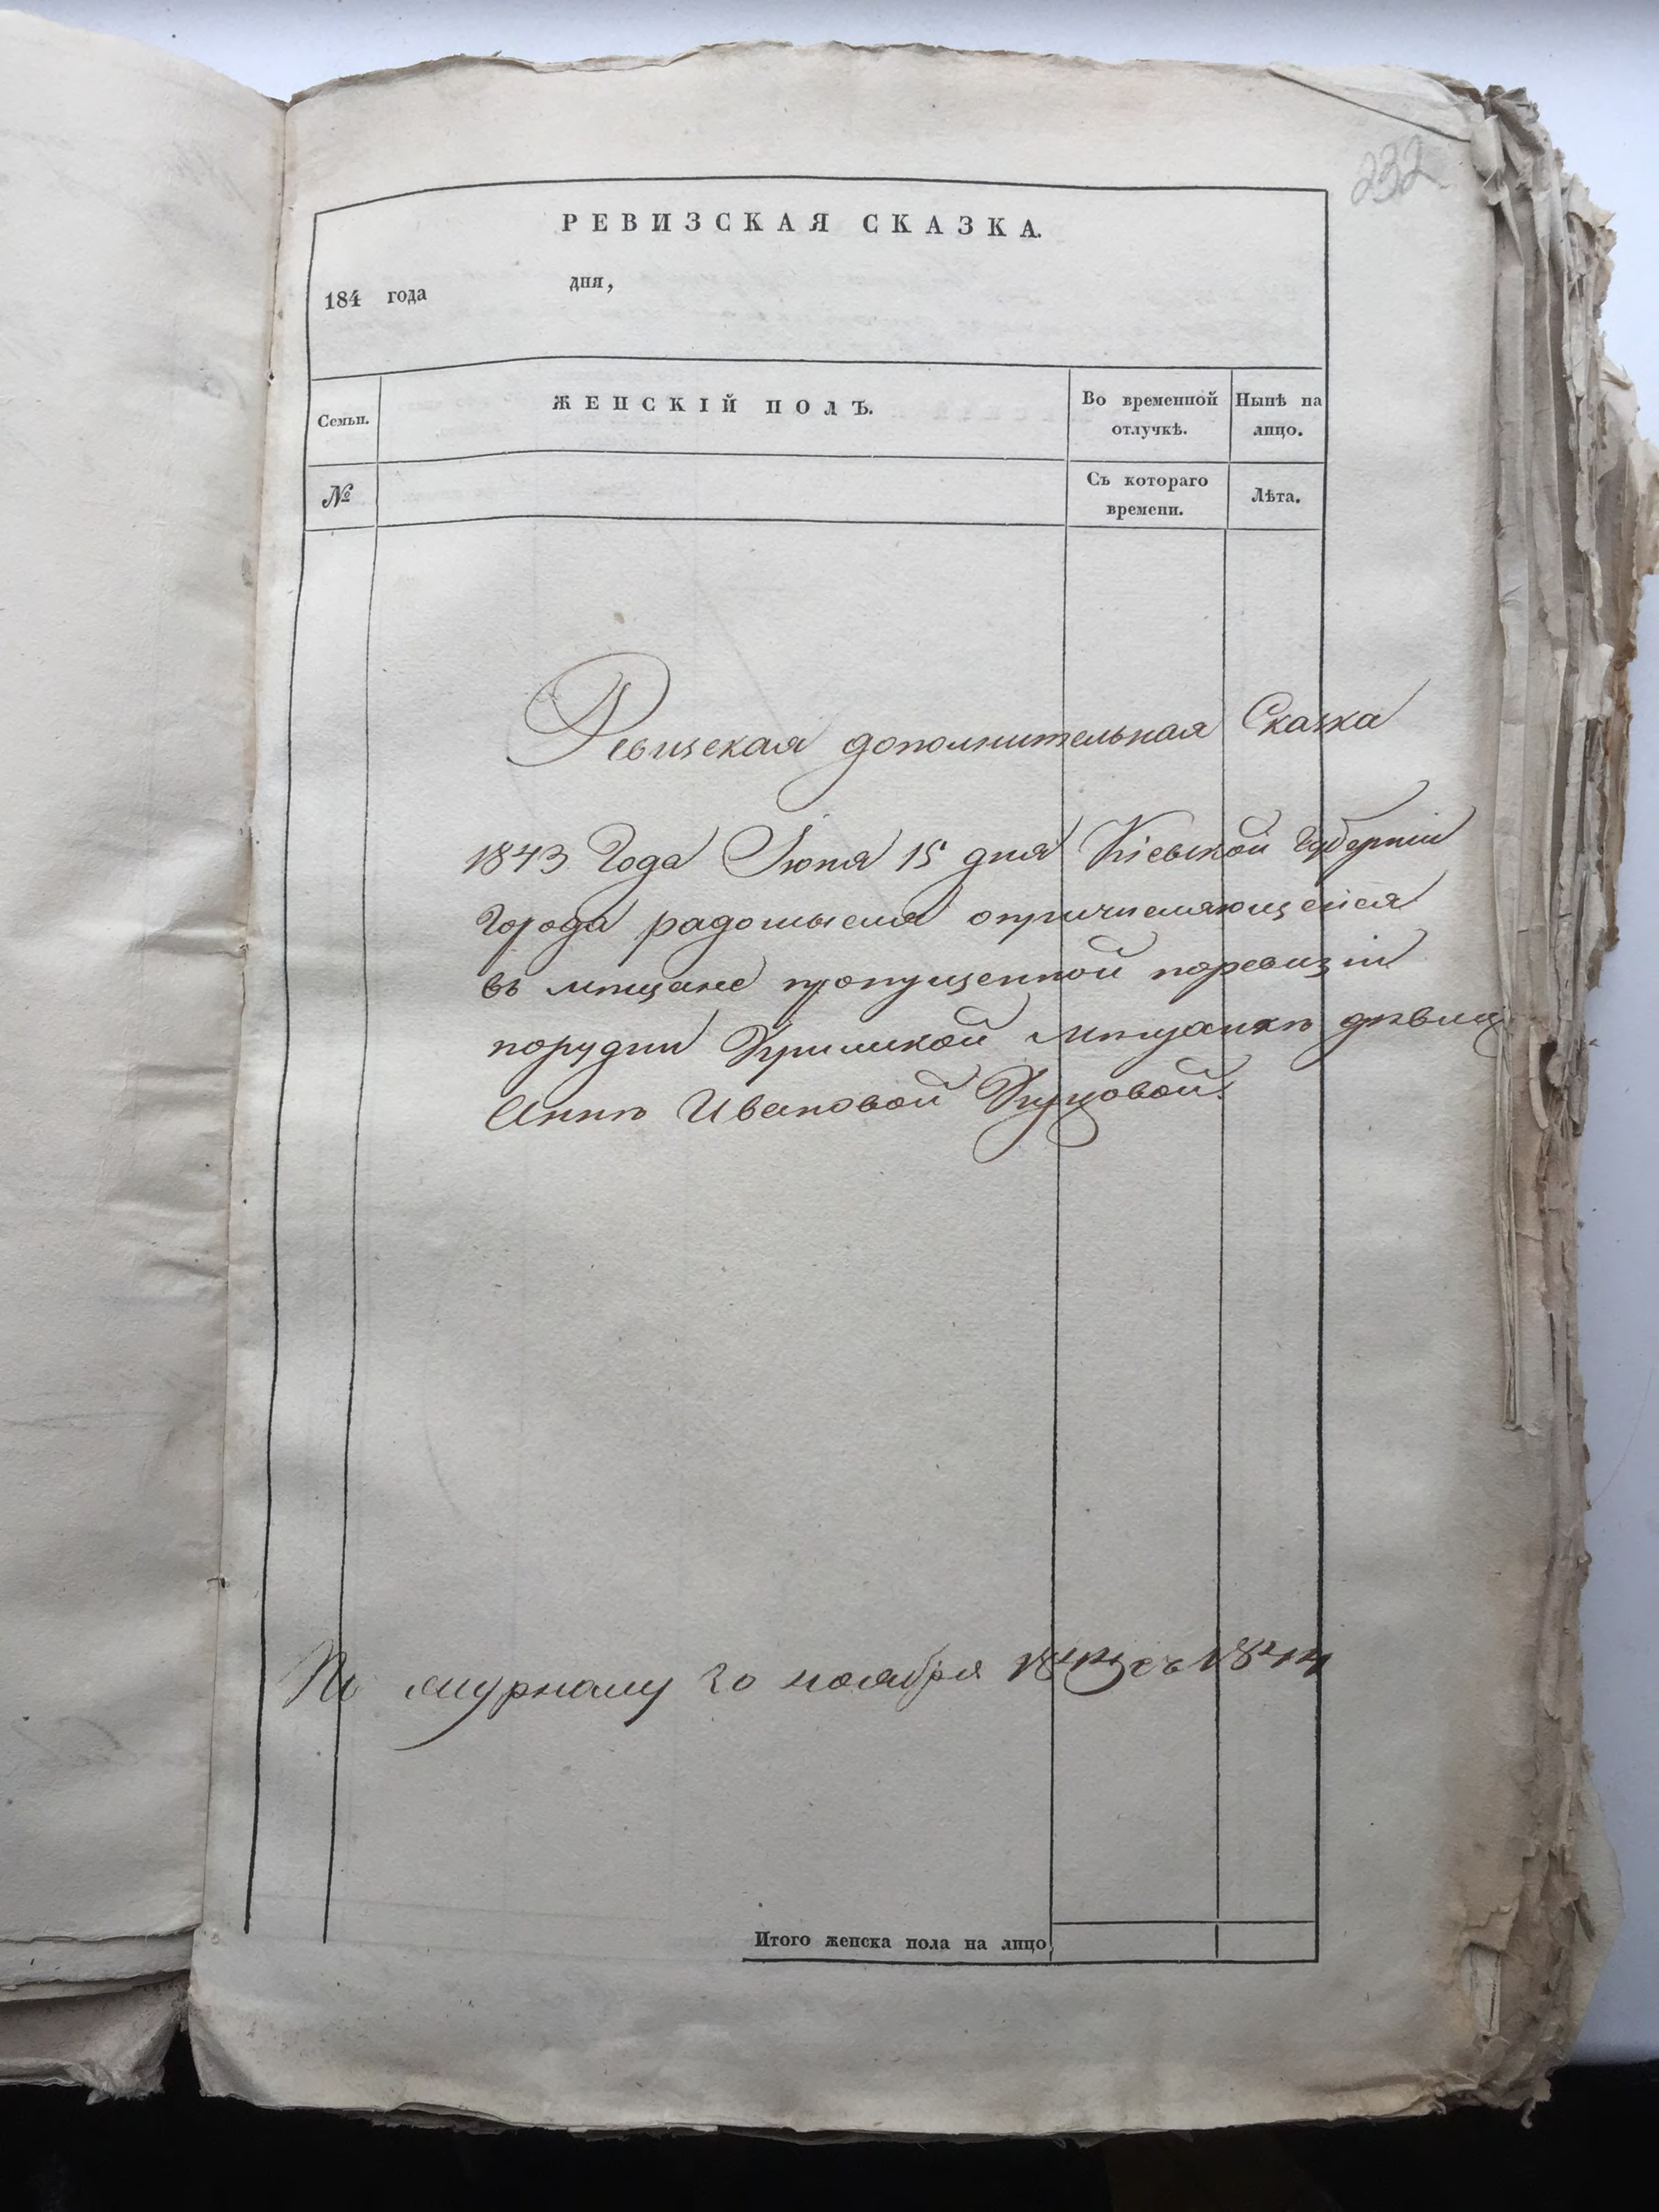 232
РЕВИЗСКАЯ СКАЗКА.
184 года дня,
Семьи. ЖЕНСКІЙ ПОЛЪ. Во временной отлучкѣ. Нынѣ на лицо.
№ Съ котораго времени. Лѣта.
Ревизская дополнительная Сказка
1843 Года Іюня 15 дня Кіевской Губерніи
Города радомысля опричисляющейся
въ мѣщане пропущенной поревизіи
мѣщанкѣ дѣвицѣ
Аннѣ Ивановой
По журналу 20 ноября 1843 съ 1844
Итого женска пола на лицо